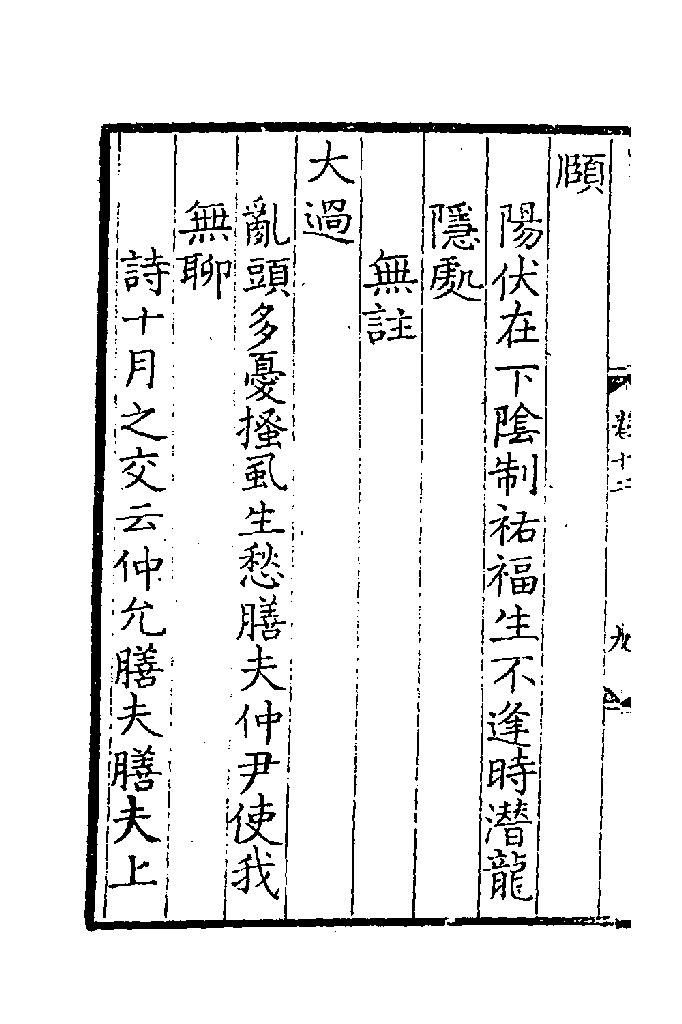 頤
陽伏在下陰制祐福生不逢時潛龍
隱處
無註
大過
亂頭多憂搔虱生愁膳夫仲尹使我
無聊
詩十月之交云仲允膳夫膳夫上